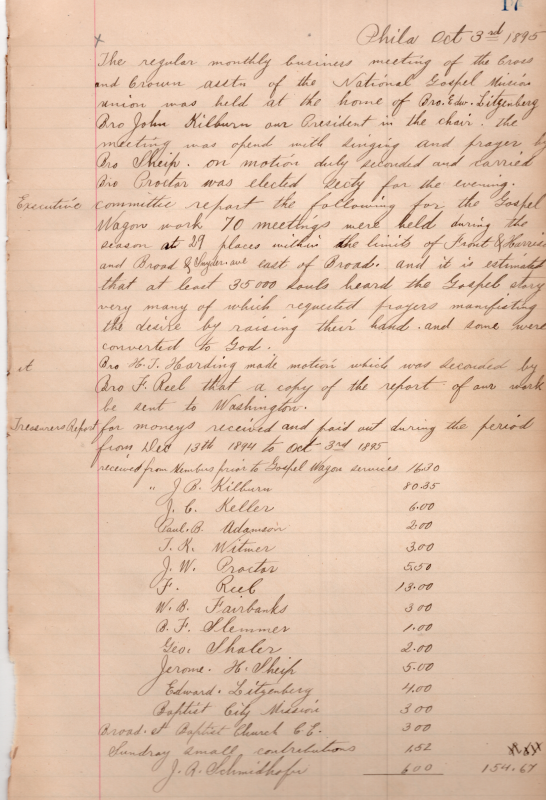 17
Phila Oct 3rd 1895
The regular monthly business meeting of the Cross
and Crown asstn of the National Gospel Mission
union was held at the home of Bro. Edw. Litzenberg
Bro John Kilburn our President in the chair. the
meeting was opend with singing and prayer by
Bro Sheip. on motion duly seconded and carried
Bro Proctor was elected secty for the evening.
Executive committee report the following for the Gospel
Wagon work 70 meetings were held during the
season at 29 places within the limits of Front & Harris
and Broad & Snyder ave east of Broad. and it is estimated
that at least 35000 souls heard the Gospel story
very many of which requested prayers manifisting
the desire by raising their hand. and some were
converted to God.
Bro H. T. Harding made motion which was seconded by
Bro F. Reel that a copy of the report of our work
be sent to Washington.
Treasurers Report for moneys received and paid out during the period
from Dec 13th 1894 to Oct 3rd 1895
received from Members prior to Gospel Wagon services 16.30
" J. R. Kilburn 80.35
J. C. Keller 6.00
Paul. B. Adamson 2.00
T. K. Witmer 3.00
J. W. Proctor 5.50
F. Reel 13.00
W. B. Fairbanks 3 00
B. F. Slemmer 1.00
Geo. Shaler 2.00
Jerome. H. Sheip 5.00
Edward. Litzenberg 4.00
Baptist City Mission 3 00
Broad. st Baptist Church C. E. 3 00
Sundray small contributions 1.52
J. R. Schmidhofer 6 00 154.67